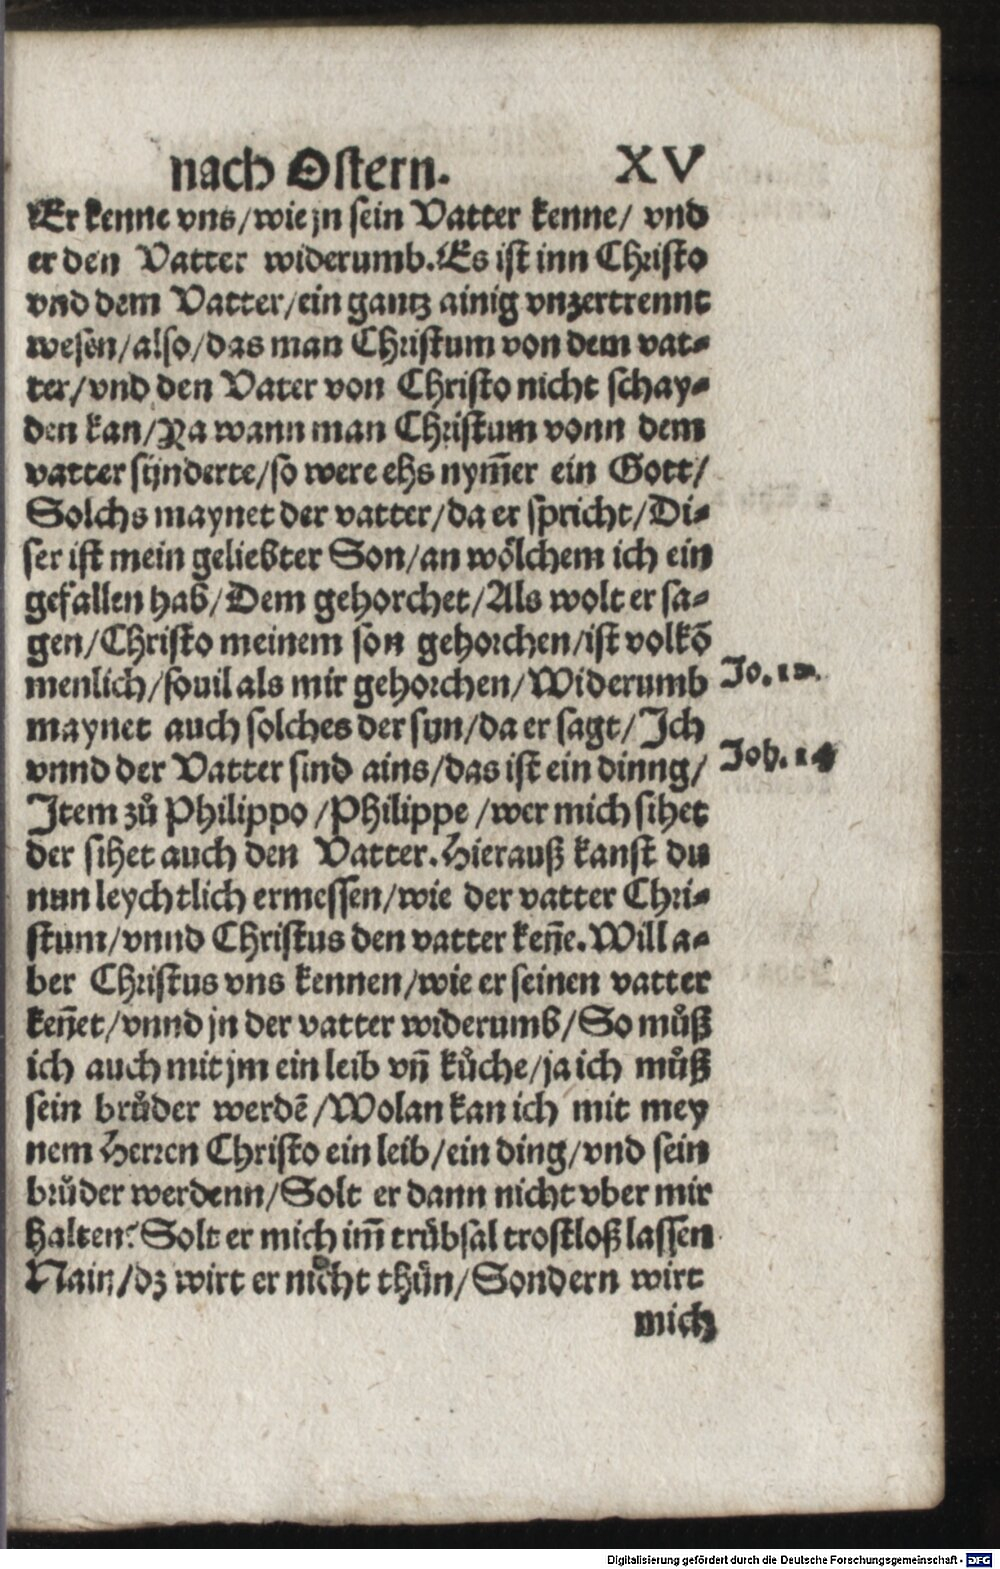 nach Ostern. XV
Er kenne vns/wie jn sein Vatter kenne/ vnd
er den Vatter widerumb. Es ist inn Christo
vnd dem Vatter/ein gantz ainig vnzertrennt
wesen/also/das man Christum von dem vat-
ter/vnd den Vater von Christo nicht schay-
den kan/Ya wann man Christum vonn dem
vatter sünderte/so were ehs nym̄er ein Gott/
Solchs maynet der vatter/da er spricht/Di-
ser ist mein geliebter Son/an wölchem ich ein
gefallen hab/Dem gehorchet/Als wolt er sa-
gen/Christo meinem son gehorchen/ist volkō
menlich/souil als mir gehorchen/Widerumb
Jo.
maynet auch solches der sun/da er sagt/Ich
vnnd der Vatter sind ains/das ist ein dinng/
Joh. 14
Item zů Philippo/Philippe/wer mich sihet
der sihet auch den Vatter. Hierauß kanst du
nun leychtlich ermessen/wie der vatter Chri-
stum/vnnd Christus den vatter ken̄e. Will a-
ber Christus vns kennen/wie er seinen vatter
ken̄et/vnnd jn der vatter widerumb/So můß
ich auch mit jm ein leib vn̄ kůche/ja ich můß
sein brůder werdē/Wolan kan ich mit mey
nem Herren Christo ein leib/ein ding/vnd sein
brůder werdenn/Solt er dann nicht vber mir
halten? Solt er mich im̄ trübsal trostloß lassen
Nain/dz wirt er nicht thůn/Sondern wirt
mich
Digitalisierung gefördert durch die Deutsche Forschungsgemeinschaft - DFG